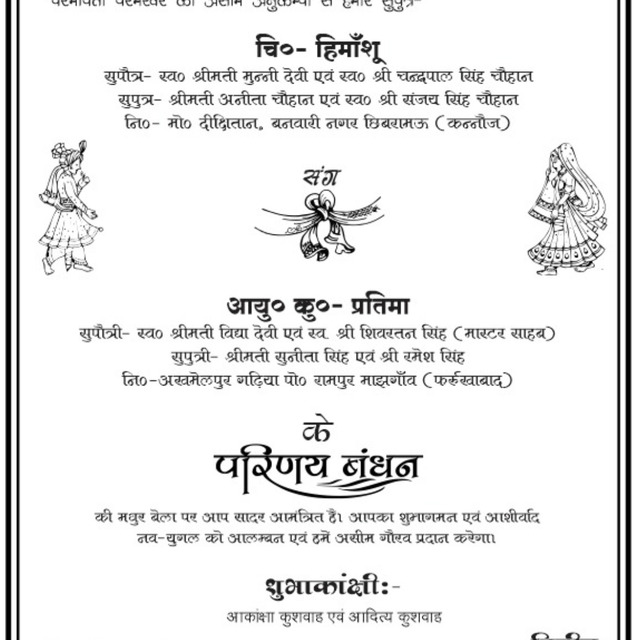 परमपिता परमेश्वर की असीम अनुकम्पा से हमारे सुपुत्र-
चि०- हिमाँशू
सुपौत्र- स्व० श्रीमती मुन्नी देवी एवं स्व० श्री चन्द्रपाल सिंह चौहान
सुपुत्र- श्रीमती अनीता चौहान एवं स्व० श्री संजय सिंह चौहान
नि०- मो० दीक्षितान, बनवारी नगर छिबरामऊ (कन्नौज)
संग
आयु० कु०- प्रतिमा
सुपौत्री- स्व० श्रीमती विद्या देवी एवं स्व. श्री शिवरतन सिंह (मास्टर साहब)
सुपुत्री- श्रीमती सुनीता सिंह एवं श्री रमेश सिंह
नि०-अखमेलपुर गढ़िया पो० रामपुर माझगाँव (फर्रुखाबाद)
के
परिणय बंधन
की मधुर बेला पर आप सादर आमंत्रित है। आपका शुभागमन एवं आशीर्वाद
नव-युगल को आलम्बन एवं हमें असीम गौरव प्रदान करेगा।
शुभाकांक्षी:-
आकांक्षा कुशवाह एवं आदित्य कुशवाह